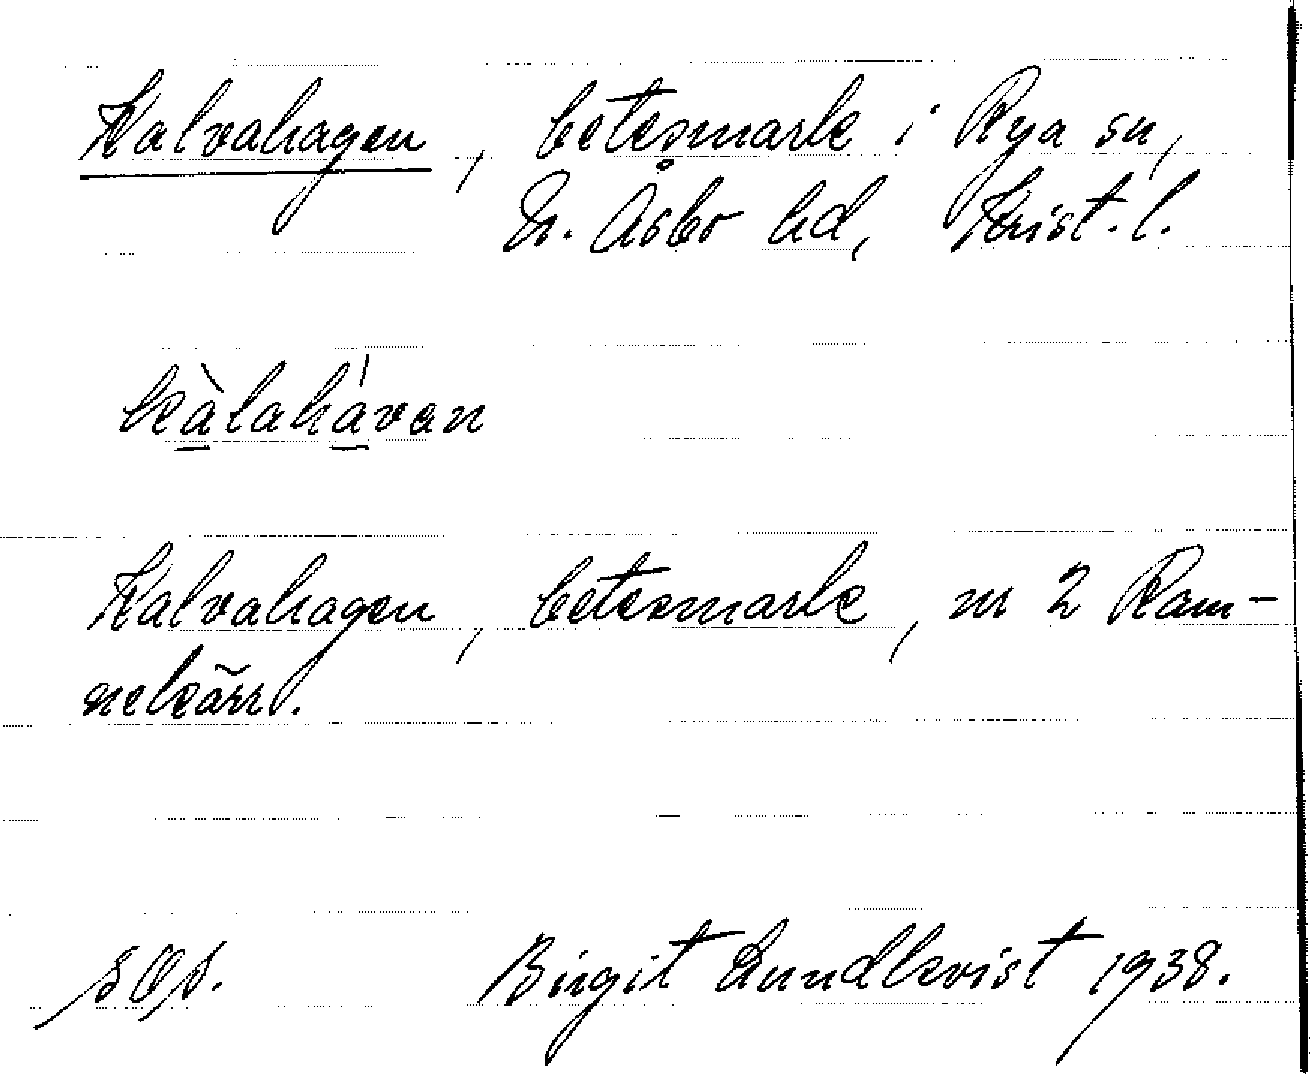 Kalvahagen, betesmark i Rya sn,
N. Åsbo hd, Krist. l.
kàlahávan
Kalvahagen, betesmark, nr 2 Ram-
nekärr.
Birgit Lundkvist 1938.